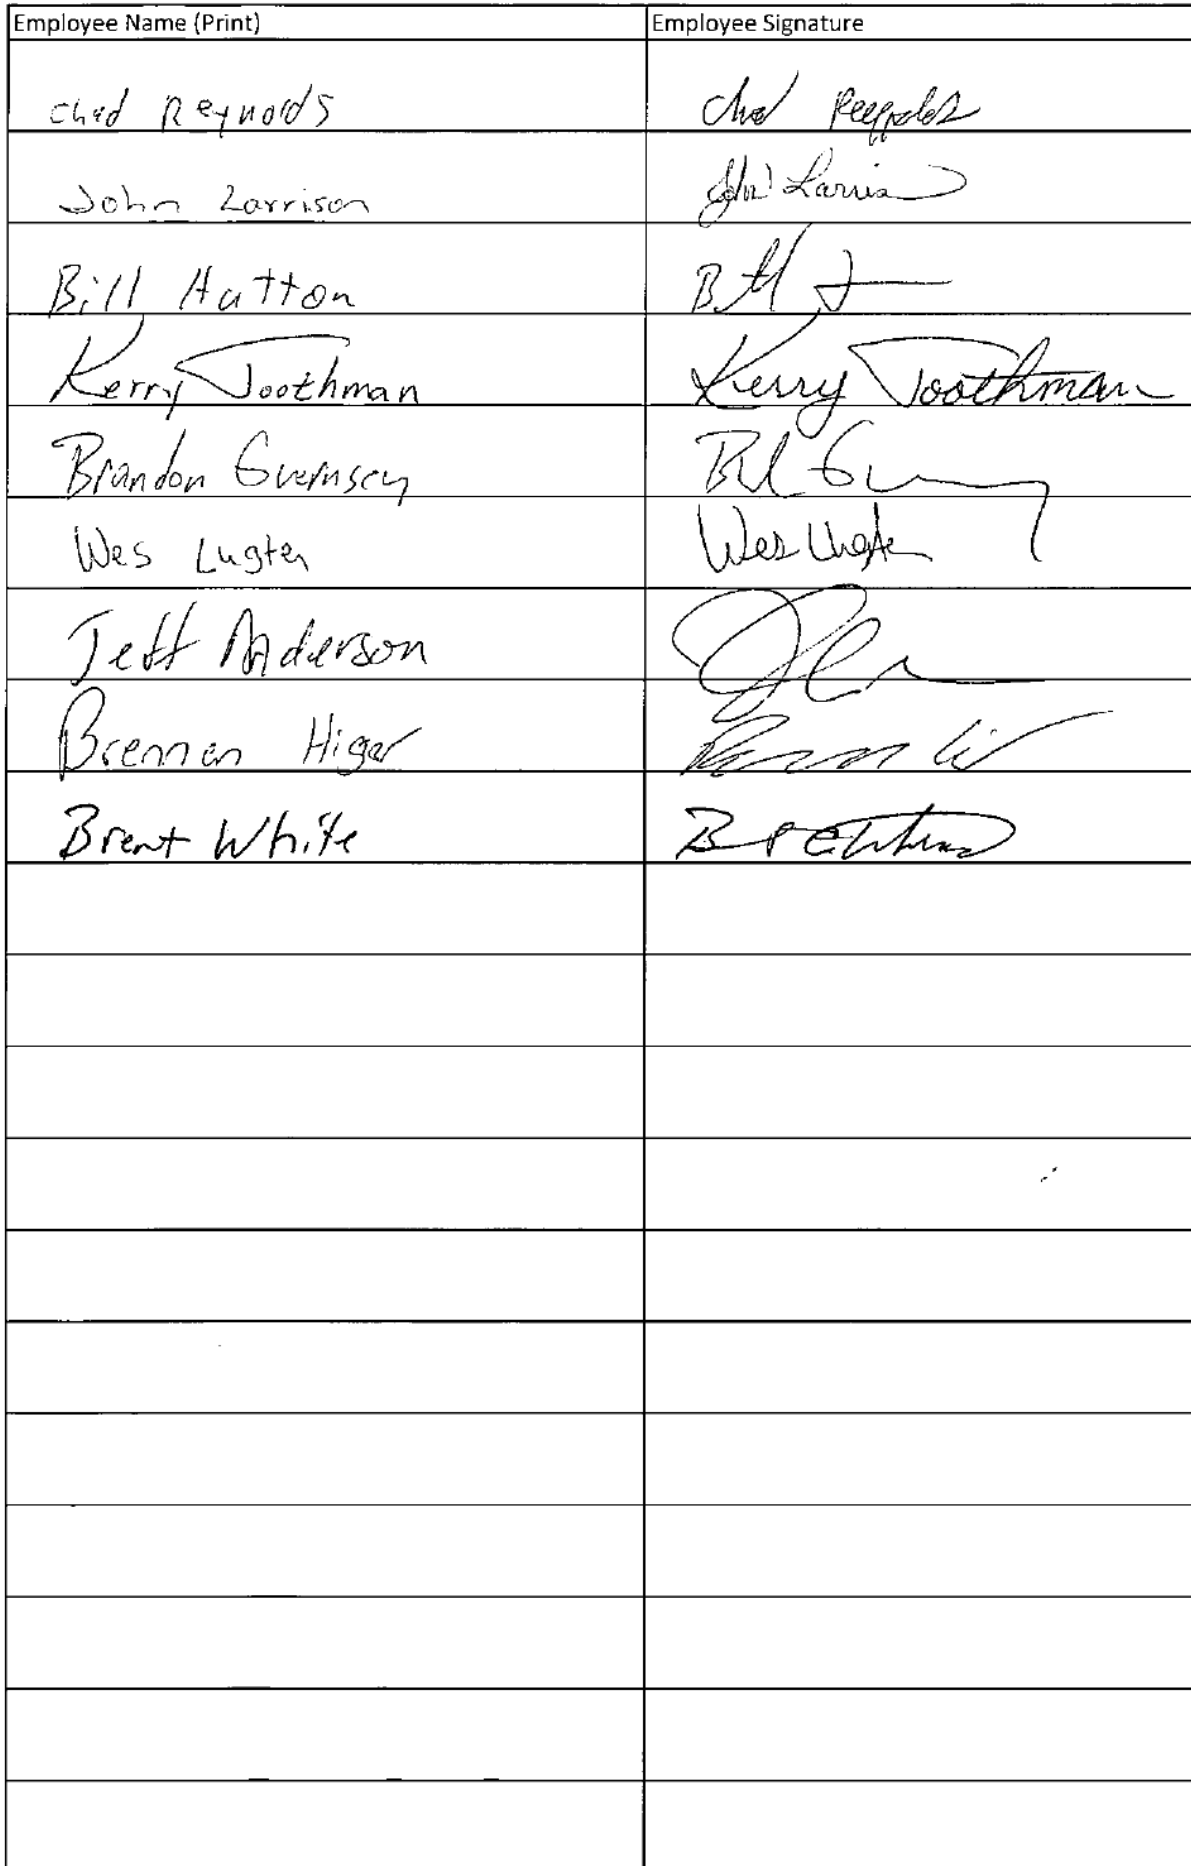 Employee Name (Print) Employee Signature
Chad Reynolds Chad Reynolds
John Larrison John Larrison
Bill Hutton
Kerry Toothman Kerry Toothman
Brandon Guernsey
Wes Lugten Wes Lugten
Jeff Anderson
Brennan Higer
Brent White